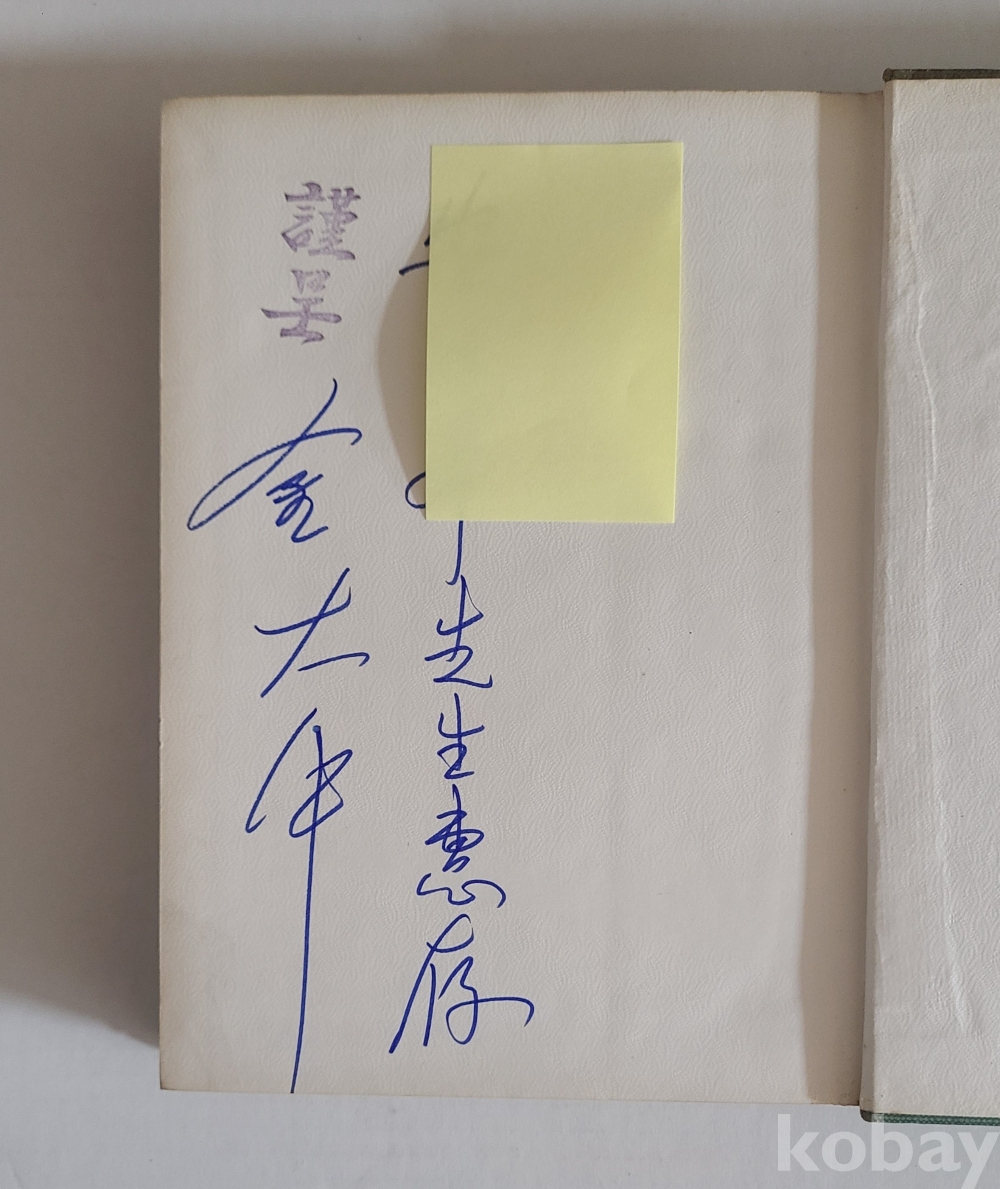 先生惠存
謹呈 金大
kobay